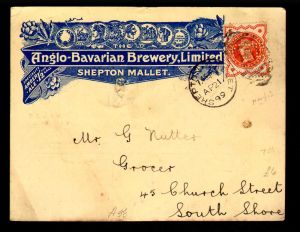 THE
Anglo-Bavarian Brewery, Limited
SHEPTON MALLET.
AP 21
99
Mr G Nutter
Grocer
45 Church Street
South Shore